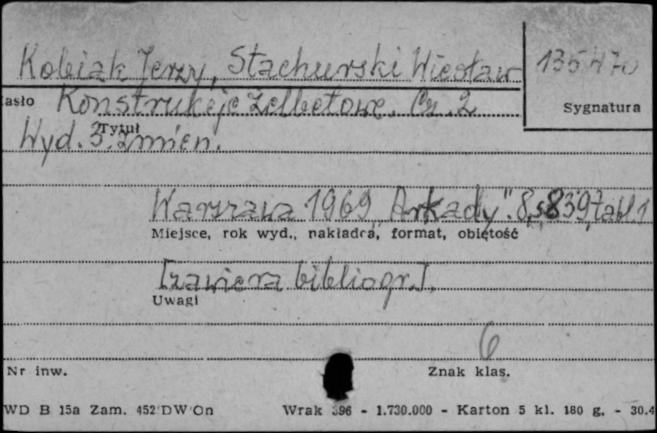 Kobiak Jerzy, Stachurski Wiesław
135470
asło
Konstrukcje żelbetowe. Cz. 2
Sygnatura
Tytuł
Wyd. 3. zmien.
Warszawa 1969 "Arkady". 8, s. 839, tabl. 1
Miejsce, rok wyd., nakładca, format, objętość
[zawiera bibliogr.].
Uwagi
6
Nr inw.
Znak klas.
WD B 15a Zam. 452 DW On Wrak 396 - 1.730.000 - Karton 5 kl. 180 g. - 30.4